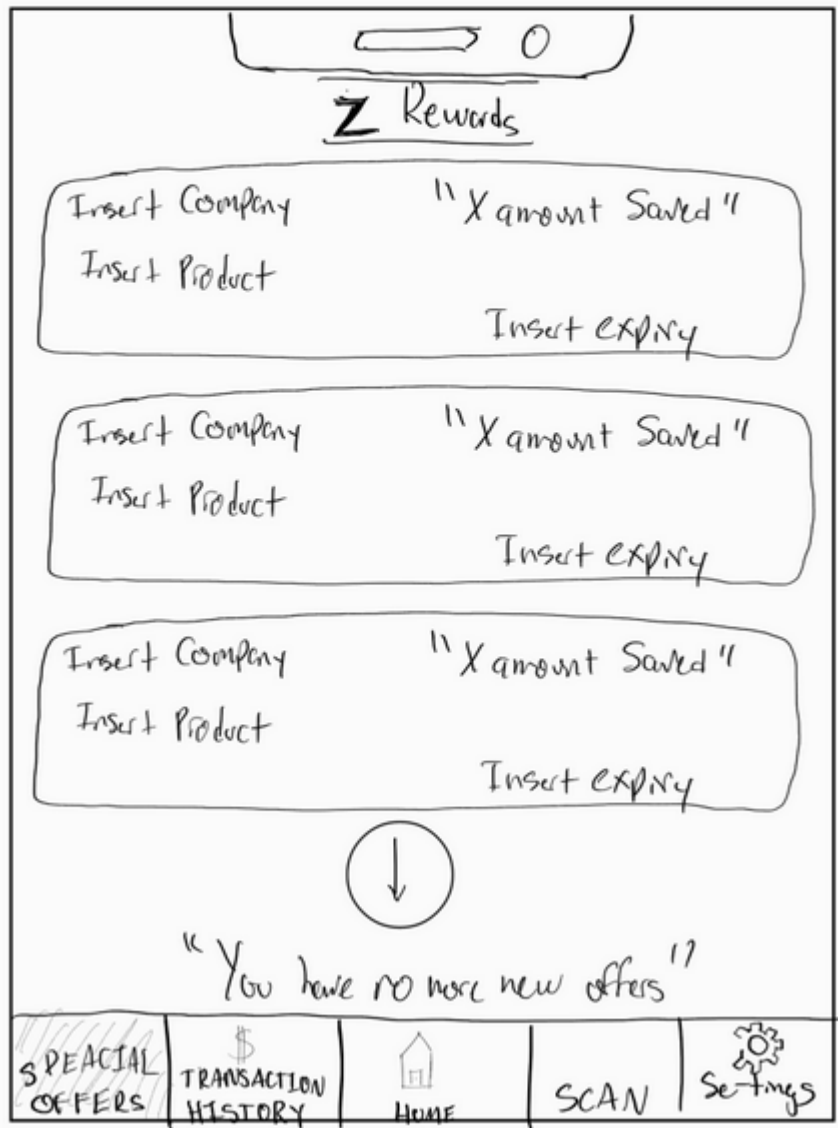 Z Rewards
Insert Company "X amount Saved"
Insert Product
Insert expiry
Insert Company "X amount Saved"
Insert Product
Insert expiry
Insert Company "X amount Saved"
Insert Product
Insert expiry
"You have no more new offers"
SPEACIAL
OFFERS
$
TRANSACTION
HISTORY
HOME
SCAN
Settings